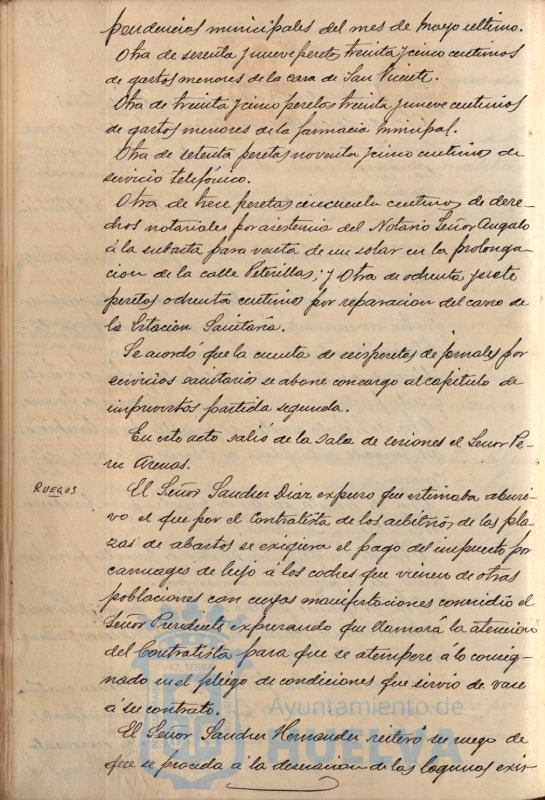 pendencias municipales del mes de Mayo ultimo.
Otra de sesenta y nueve pesetas treinta y cinco centimos
de gastos menores de la casa de San Vicente.
Otra de treinta y cinco pesetas treinta y nueve centimos
de gastos menores de la farmacia municipal.
Otra de setenta pesetas noventa y cinco centimos de
servicio telefónico.
Otra de trece pesetas cincuenta centimos de dere-
chos notariales por asistencia del Notario Señor
á la subasta para venta de un solar en la prolonga-
cion de la calle Peterillas; y Otra de ochenta y siete
pesetas ochenta centimos por reparacion del carro de
la Estacion Sanitaria.
Se acordó que la cuenta de seis pesetas de jornales por
servicios sanitarios se abone con cargo al capitulo de
imprevistos partida segunda.
En este acto salió de la sala de sesiones el Señor Pe-
rez Arenas.
RUEGOS
El Señor Sanchez Diaz expuso que estimaba abusi-
vo el que por el Contratista de los arbitrios de las pla-
zas de abastos se exigiera el pago del impuesto por
carruages de lujo á los coches que vienen de otras
poblaciones con cuyas manifestaciones coincidió el
Señor Presidente expresando que llamará la atencion
del Contratista para que se atempere á lo consig-
nado en el pliego de condiciones que sirvio de vase
á su contrato.
El Señor Sanchez Hernandez reiteró su ruego de
que se proceda á la desecacion de las lagunas exis-
Ayuntamiento de
HUELVA